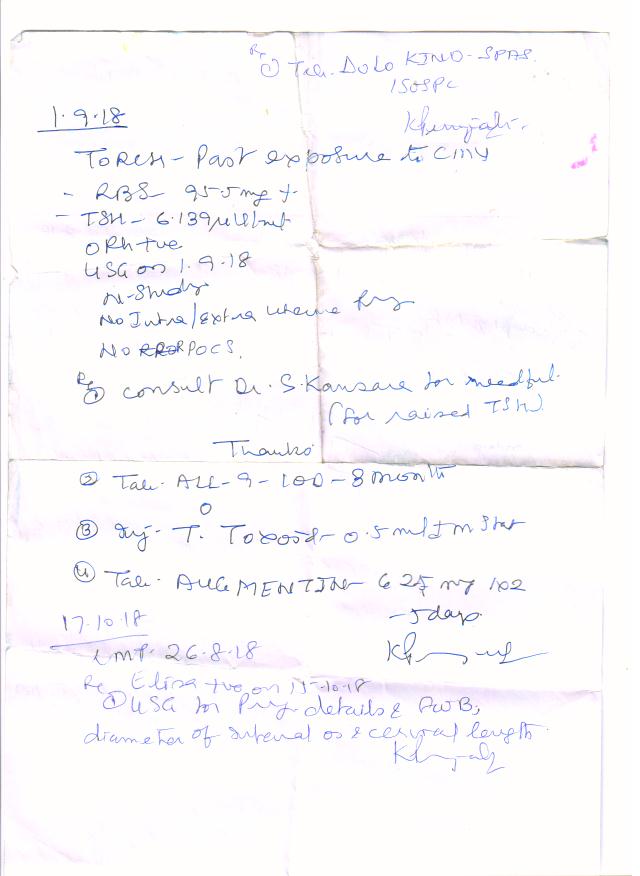 Rx ① Tab. DOLO KIND-SPAS.
1SOSPC
1.9.18
TORCH - Past exposure to CMV
- RBS 95.5 mg
- TSH - 6.139 µIU/ml
O Rh +ve
USG on 1.9.18
N-Study
No Intra/Extra Uterine Preg
No POCS.
Rx ① consult Dr. S. Kansare for needful.
(for raised TSH)
Thanks
② Tab. ALL-9 - 1OD - 3 month
③ Inj- T. Toxoid - 0.5 ml Im Stat
④ Tab. AUGMENTIN 625 mg 1x2
- 5 days
17.10.18
LMP. 26.8.18
Rx Eliza +ve on 15-10-18
① USG for Preg details & FWB,
diameter of internal os & cervical length.